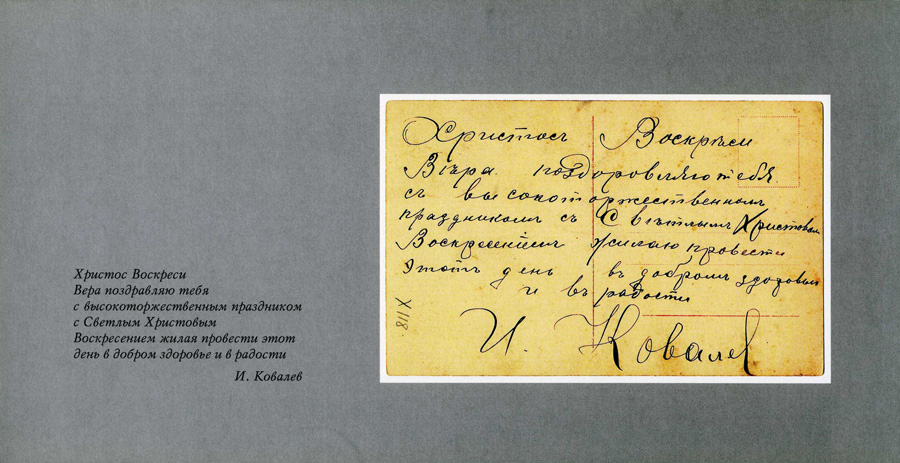 Христос Воскреси
Вера поздравляю тебя
с высокоторжественным праздником
с Светлым Христовым
Воскресением жилая провести этот
день в добром здоровье и в радости
И. Ковалев
Христосъ Воскрѣси
Вѣра поздоровляю тебя
съ высокоторжественномъ
праздникомъ съ Свѣтлымъ Христовым
Воскресениімъ жилаю провести
этотъ день въ добромъ здоровьи
и въ радости
И. Ковалев
X 118